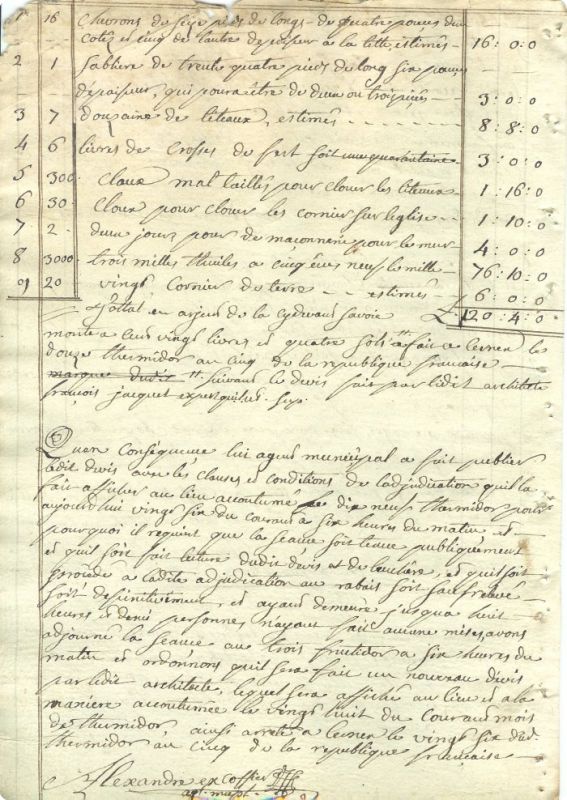 1 16 chevrons de seize pieds de longs de quatre pouces d'un
coté et cinq de l'autre depesseur a la tette, estimés 16 : 0 : 0
2 1 Sabliere de trente quatre pieds de long six pouces
depaisseur, qui poura être de deux ou trois pièces 3 : 0 : 0
3 7 douzaine de liteaux, estimés 8 : 8 : 0
4 6 livres de crosses de fert soit une quarantaine 3 : 0 : 0
5 300 Cloux mal taillés pour clouer les liteaux 1 : 16 : 0
6 30 Cloux pour clouer les cornier sur leglise 1 : 10 : 0
7 2 deux jours pour de maçonnerie pour le mur 4 : 0 : 0
8 3000 trois milles thuiles a cinq écus neuf le mille 76 : 10 : 0
9 20 vingt cornier de terre estimés 6 : 0 : 0
Tottal en argent de la cydevant savoie L. 120 : 4 : 0
monte a cent vingt livres et quatre sols fait a Cerner le
douze thermidor an cinq de la republique francaise
marque dudit suivant le devis fait par ledit architecte
françois jacquet expert
Quen conséquence lui agent municipal a fait publier
ledit devis avec les clauses et conditions de ladjudication quil la
fait afficher au lieu accoutumé le dix neuf thermidor pour
aujourdhui vingt six du courant a six heures du matin et
pourquoi il requiert que la seance soit tenue publiquement
et quil soit fait lecture dudit devis et de et quil soit
procédé a ladite adjudication au rabais soit
soit definitivement, et ayant demeuré jusqua huit
heures et demi personnes nayant fait aucune mises, avons
adjourné la seance au trois fructidor a six heures du
matin et ordonnons quil sera fait un nouveau devis
par ledit architecte, lequel sera affiché au lieu et a la
manière accoutumée le vingt huit du courant mois
de thermidor, ainsi arretté a Cerner le vingt six dud
thermidor an cinq de la republique francaise
Alexandre excoffier
agt. mupt.